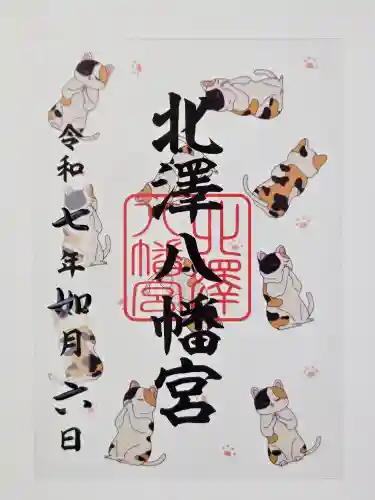 北澤八幡宮
令和七年如月六日
北澤八幡宮